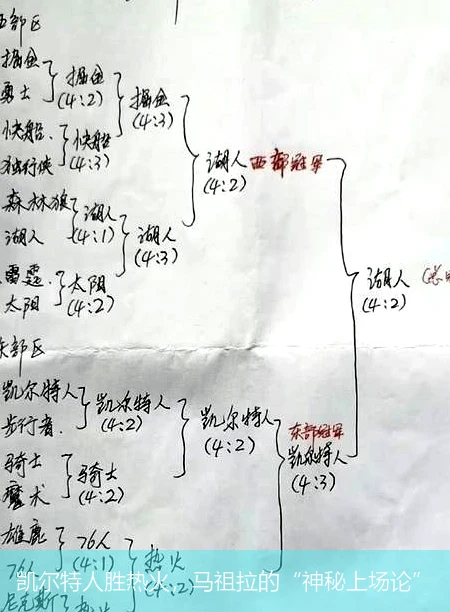 西部区
掘金
勇士
掘金
(4:2)
快船
独行侠
快船
(4:3)
掘金
(4:3)
森林狼
湖人
湖人
(4:1)
雷霆
太阳
太阳
(4:2)
湖人
(4:3)
湖人
(4:2)
西部冠军
湖人
(4:2)
东部区
凯尔特人
步行者
凯尔特人
(4:2)
骑士
魔术
骑士
(4:2)
凯尔特人
(4:2)
东部冠军
凯尔特人
(4:3)
雄鹿
76人
76人
(4:1)
热火
(4:2)
尼克斯
热火
凯尔特人胜热火，马祖拉的“神秘上场论”